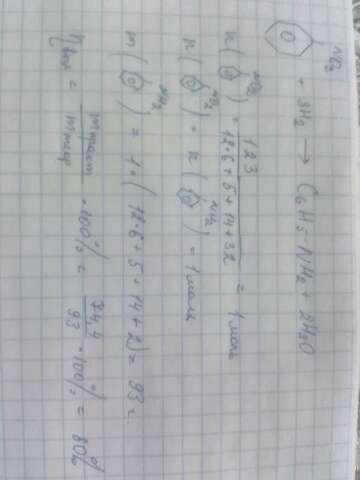 NO₂
+ 3H₂ → C₆H₅NH₂ + 2H₂O
n( NO₂ ) = 123 / 12·6+5+14+32 = 1 моль
n( NO₂ ) = n( NH₂ ) = 1 моль
m( NH₂ ) = 1·(12·6+5+14+2) = 93 г
ηвых = mпракт / mтеор · 100% = 74,4 / 93 · 100% = 80%